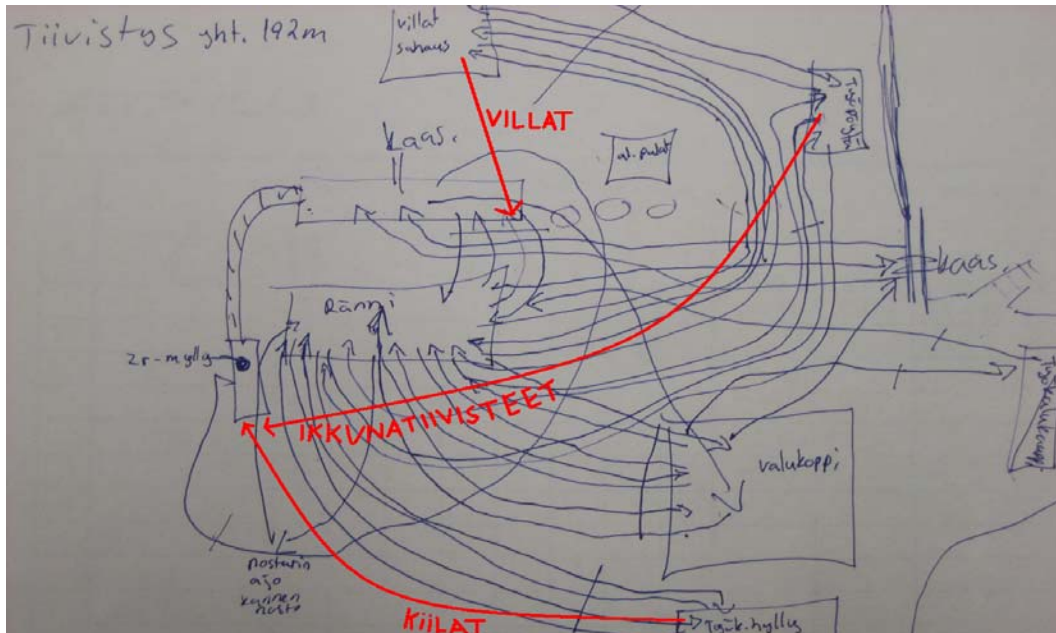 Tiivistys yht. 192m
villat
sahaus
VILLAT
kaas.
kaas.
Ränni
zr-mylly
IKKUNATIIVISTEET
valukoppi
nosturin
ajo
kannen
nosto
KIILAT
Työk.hylly